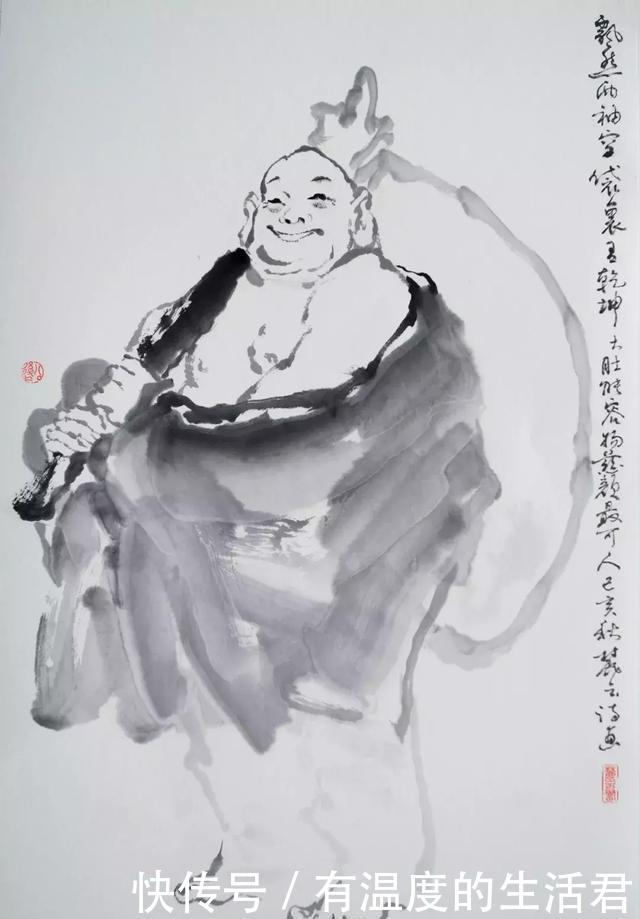 飄然两袖空袋裏有乾坤大肚能容物慈颜最可人己亥秋云诗画
快传号 / 有温度的生活君